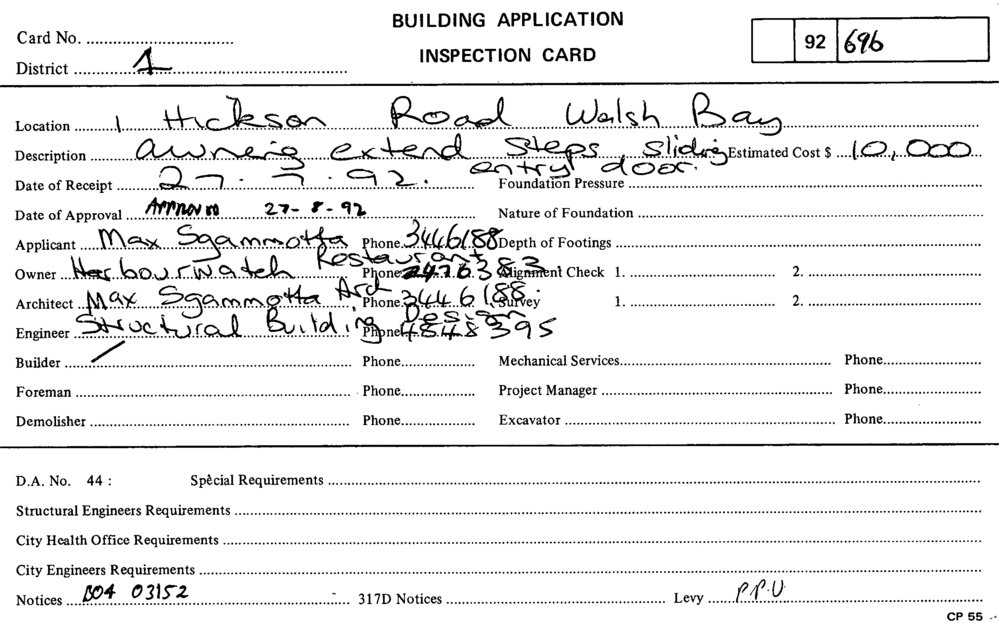 BUILDING APPLICATION
INSPECTION CARD
Card No.
District 1
92 696
Location 1 Hickson Road Walsh Bay
Description awning extend steps sliding Estimated Cost $ 10,000
entry door.
Date of Receipt 27.7.92. Foundation Pressure
Date of Approval APPROVED 27-8-92 Nature of Foundation
Applicant Max Sgammotta Phone 3446188 Depth of Footings
Owner Harbourwatch Restaurant Phone 2476383 Alignment Check 1. 2.
Architect Max Sgammotta Arch Phone 3446188. Survey 1. 2.
Engineer Structural Building Design Phone 4848395
Builder Phone Mechanical Services Phone
Foreman Phone Project Manager Phone
Demolisher Phone Excavator Phone
D.A. No. 44 : Special Requirements
Structural Engineers Requirements
City Health Office Requirements
City Engineers Requirements
Notices BO4 03152 317D Notices Levy P.P.U
CP 55